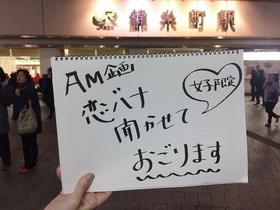 錦糸町駅
AM企画
恋バナ
聞かせて
おごります
女子限定